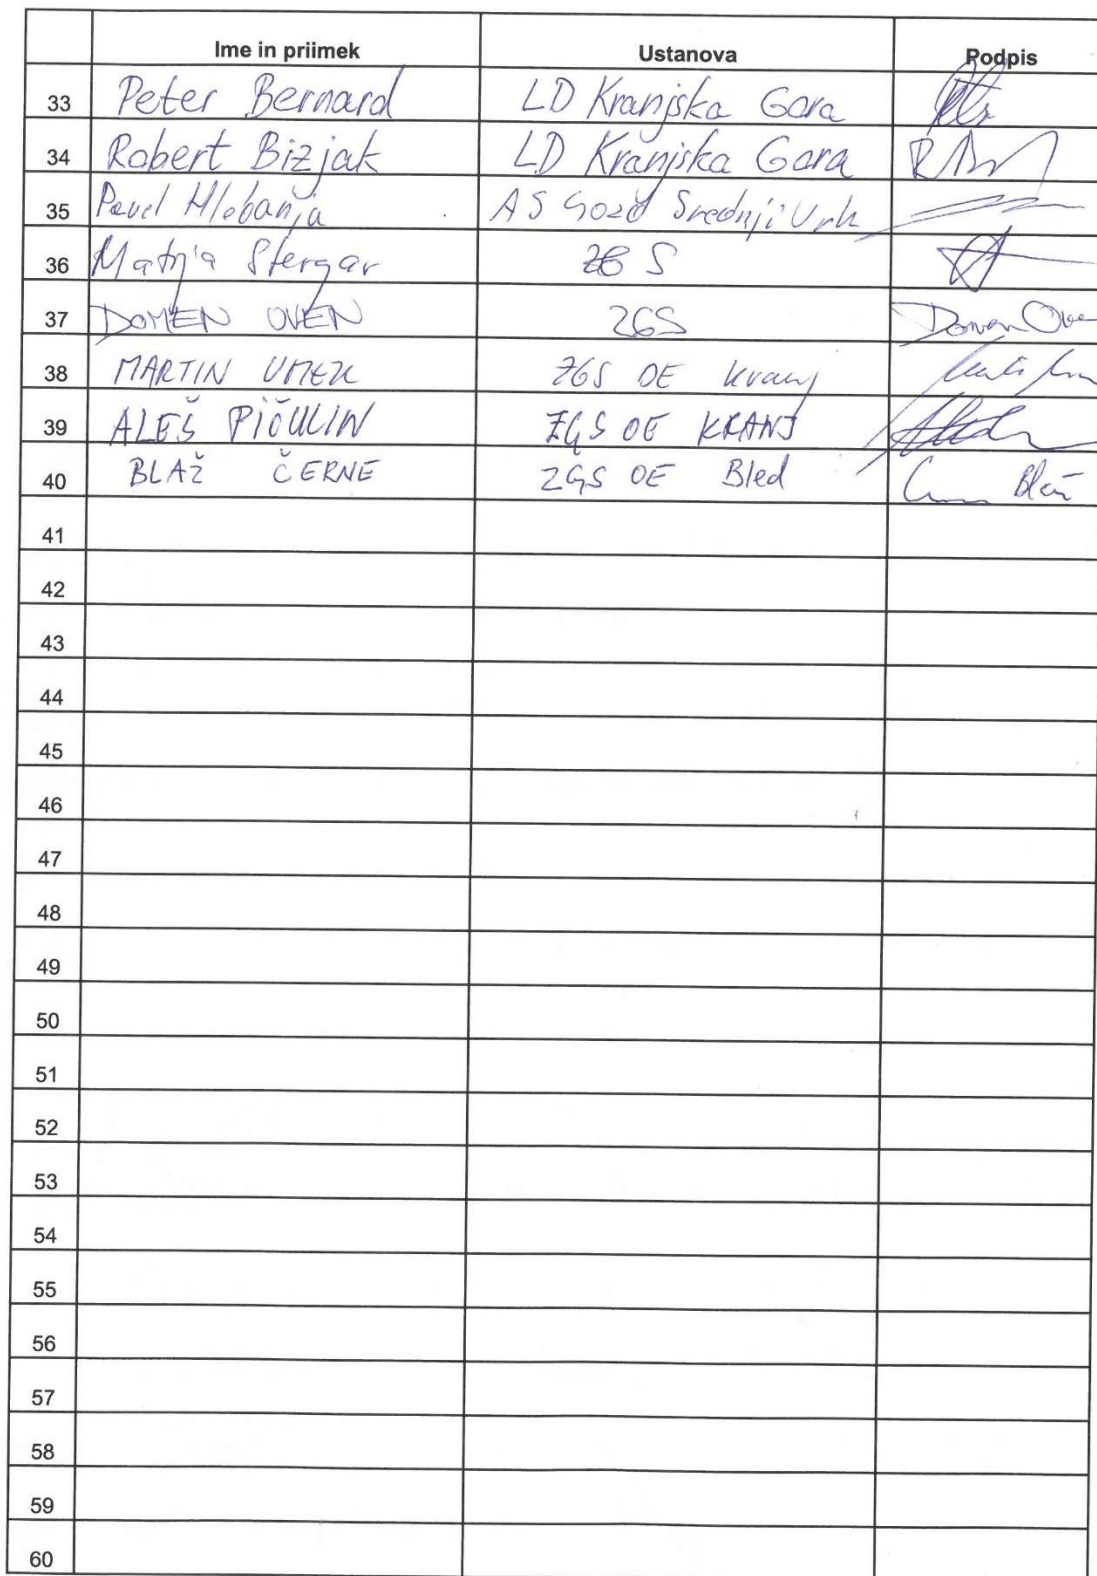 Ime in priimek Ustanova Podpis
33 Peter Bernard LD Kranjska Gora
34 Robert Bizjak LD Kranjska Gora
35 Pavel Hlebanja AS Gozd Srednji Vrh
36 Matija Stergar ZGS
37 DOMEN OVEN ZGS Domen Oven
38 MARTIN UMEK ZGS OE Kranj
39 ALEŠ PIČULIN ZGS OE KRANJ
40 BLAŽ ČERNE ZGS OE Bled Blaž
41
42
43
44
45
46
47
48
49
50
51
52
53
54
55
56
57
58
59
60